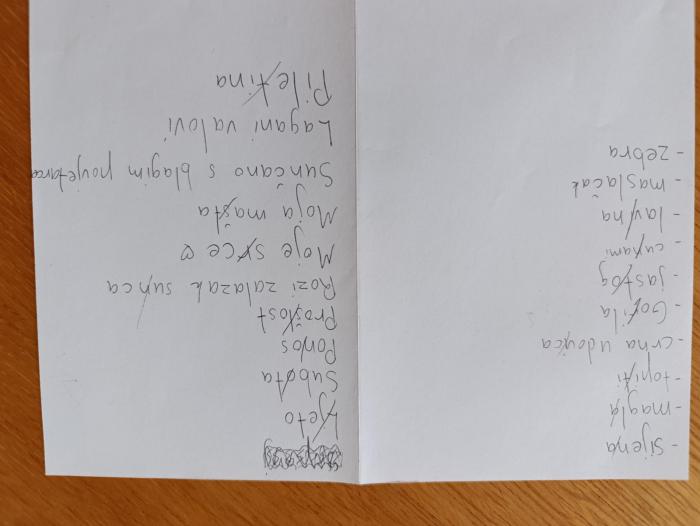 - sijena
- magla
- topiti
- crna udovica
- Gorila
- jastog
- cunami
- lavina
- maslačak
- zebra
Ljeto
Subota
Ponos
Prošlost
Rozi zalazak sunca
Moje srce ♡
Moja mašta
Sunčano s blagim povjetarcem
Lagani valovi
Piletina